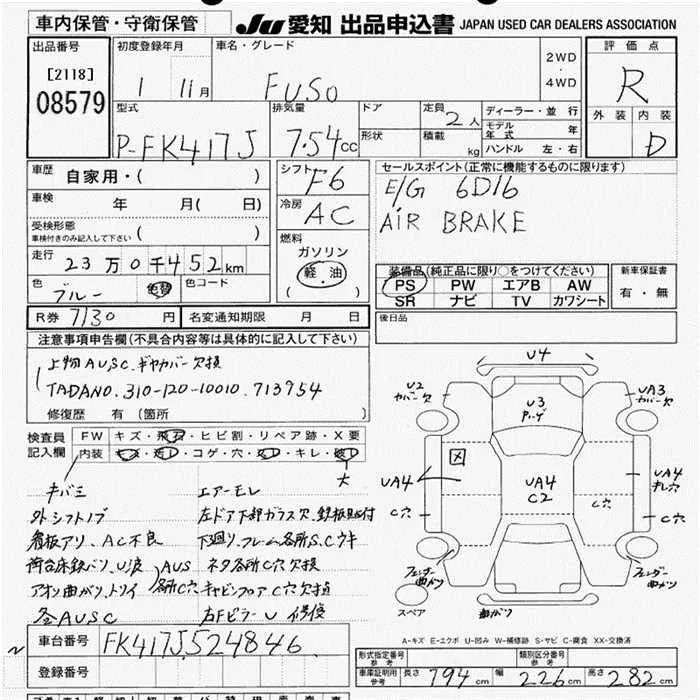 車内保管・守衛保管 JU 愛知 出品申込書 JAPAN USED CAR DEALERS ASSOCIATION
出品番号 初度登録年月 車名・グレード 評価点
[2118] 2WD
08579 1 11月 FUSO 4WD R
型式 排気量 ドア 定員 2人 ディーラー・並行 外装 内装
モデル年式 年
P-FK417J 7.54cc 形状 積載 kg ハンドル 左・右 D
車歴 自家用・( ) シフト F6 セールスポイント(正常に機能するものに限ります)
車検 年 月( 日) 冷房 AC E/G 6D16
受検形態 AIR BRAKE
車検付きのみ記入して下さい ( ) 燃料
走行 23万0千452km ガソリン 装備品(純正品に限り○をつけてください) 新車保証書
色 ブルー 色替 色コード 軽・油 PS PW エアB AW 有・無
( ) SR ナビ TV カワシート
R券 7130円 名変通知期限 月 日 後日品
注意事項申告欄(不具合内容等は具体的に記入して下さい)
上物AUSC.ギヤカバー欠損
TADANO.310-120-10010.713954
修復歴 有 〔箇所
検査員 FW キズ・飛石・ヒビ割・リペア跡・X要
記入欄 内装 キズ・汚レ・コゲ・穴・ヌレ・キレ・破レ
大
キバミ エアーモレ
外シフトノブ 左ドア下部ガラス欠.鉄板貼付
看板アリ、AC不良 下廻り.フレーム各所S.Cウキ
荷台床鉄バリ、U波 AUS各所C穴 ネタ各所C穴欠損
アオリ曲がり、トソイ キャビンフロアC穴欠損
各AUSC 右Fピラー U
U4
U2 カバー欠 U3 UA3 カバー欠
UA4 UA4 C2 UA4 キレ穴
C穴 C穴 C穴
フェンダー曲がり フェンダー曲がり
スペア 曲がり
A-キズ E-エクボ U-凹み W-補修跡 S-サビ C-腐食 XX-交換済
車台番号 FK417J524846
登録番号
形式指定番号 参考 類別区分番号 参考
車庫証明用参考 長さ 794 cm 幅 226 cm 高さ 282 cm